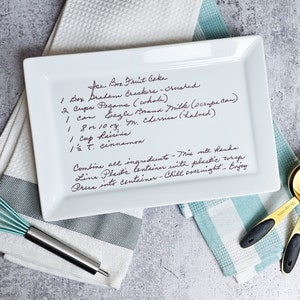 Ice Box Fruit Cake
1 Box Graham Crackers - Crushed
2 Cups Pecans (whole)
1 can Eagle Brand Milk (scrape can)
1 8 or 10 oz M. Cherries (halved)
1 Cup Raisins
1½ t. cinnamon
Combine all ingredients - Mix with hands
Line Plastic container with plastic wrap
Press into container - Chill overnight - Enjoy